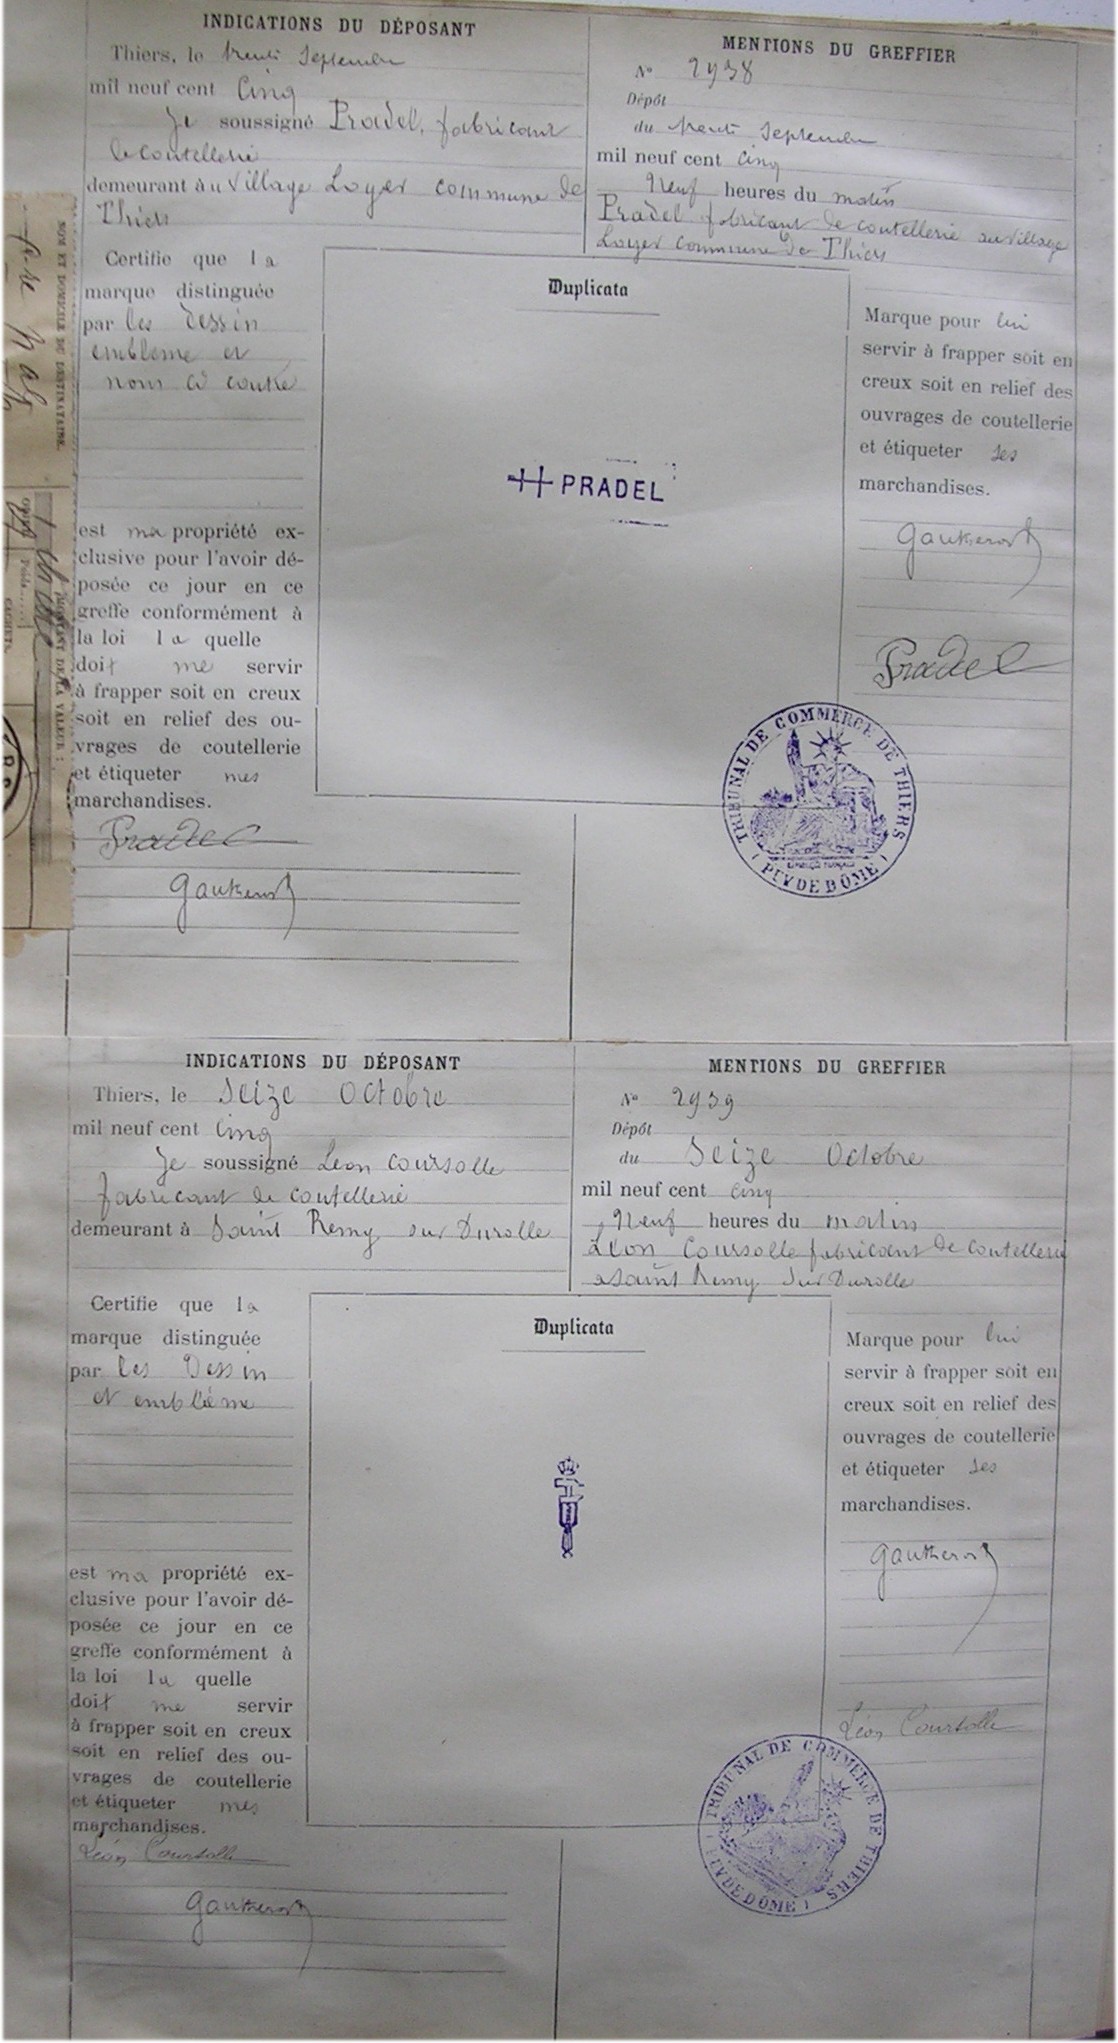 INDICATIONS DU DÉPOSANT
Thiers, le trente Septembre
mil neuf cent Cinq
Je soussigné Pradel, fabricant
de coutellerie
demeurant à au village Loyer commune de
Thiers
Certifie que la
marque distinguée
par les Dessin
emblème et
nom ci contre
est ma propriété ex-
clusive pour l'avoir dé-
posée ce jour en ce
greffe conformément à
la loi la quelle
doit me servir
à frapper soit en creux
soit en relief des ou-
vrages de coutellerie
et étiqueter mes
marchandises.
Pradel
Gautherot
Duplicata
PRADEL
MENTIONS DU GREFFIER
No 2938
Dépôt
du trente Septembre
mil neuf cent Cinq
Neuf heures du matin
Pradel fabricant de coutellerie au village
Loyer commune de Thiers
Marque pour lui
servir à frapper soit en
creux soit en relief des
ouvrages de coutellerie
et étiqueter ses
marchandises.
Gautherot
Pradel
TRIBUNAL DE COMMERCE DE THIERS
(PUY DE DÔME)
NOM ET DOMICILE DU DESTINATAIRE.
MONTANT DE LA VALEUR :
Poids
CACHETS.
INDICATIONS DU DÉPOSANT
Thiers, le Seize Octobre
mil neuf cent Cinq
Je soussigné Léon Coursolle
fabricant de coutellerie
demeurant à Saint Remy sur Durolle
Certifie que la
marque distinguée
par les Dessin
et emblème
est ma propriété ex-
clusive pour l'avoir dé-
posée ce jour en ce
greffe conformément à
la loi la quelle
doit me servir
à frapper soit en creux
soit en relief des ou-
vrages de coutellerie
et étiqueter mes
marchandises.
Léon Coursolle
Gautherot
Duplicata
MENTIONS DU GREFFIER
No 2939
Dépôt
du Seize Octobre
mil neuf cent Cinq
Neuf heures du matin
Léon Coursolle fabricant de coutellerie
a Saint Remy Sur Durolle
Marque pour lui
servir à frapper soit en
creux soit en relief des
ouvrages de coutellerie
et étiqueter ses
marchandises.
Gautherot
Léon Coursolle
TRIBUNAL DE COMMERCE DE THIERS
(PUY DE DÔME)